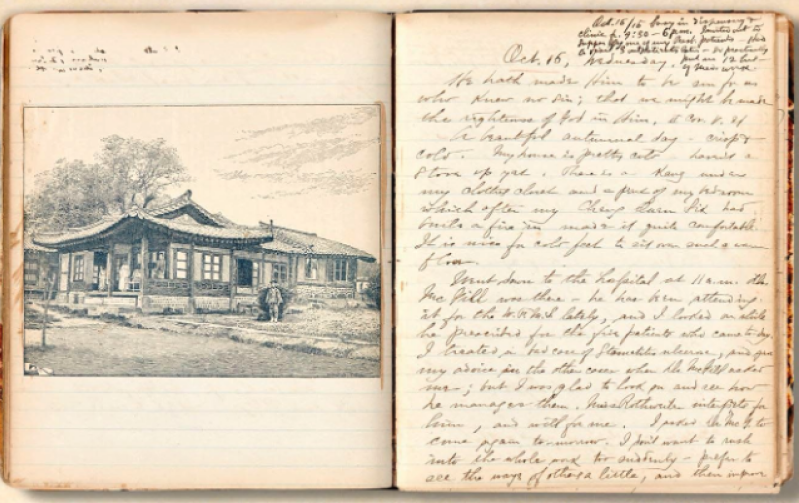 Oct. 16/15 busy in dispensary &
clinic fr. 9:30 - 6 p.m.
Oct. 15,
Wednesday.
He hath made Him to be sin for us
who knew no sin; that we might be made
the righteousness of God in Him. II Cor. V. 21
A beautiful autumnal day - crisp &
cold. My house is pretty cold haven't a
stove up yet. There is a Kang under
my clothes closet and a part of my bedroom
which after my Chung had
built a fire in made it quite comfortable.
It is nice for cold feet to sit over such a warm
floor.
Went down to the hospital at 11 a.m. Dr.
McGill was there - he has been attending
it for the W.F.M.S. lately, and I looked on while
he prescribed for the five patients who came to-day.
I treated a bad case of Stomatitis ulcerosa, and gave
my advice in the other cases when Dr. McGill asked
me; but I was glad to look on and see how
he manages them. Miss Rothweiler interprets for
him, and will for me. I asked Dr. McG. to
come again to-morrow. I don't want to rush
into the whole work too suddenly - prefer to
see the ways of others a little, and then